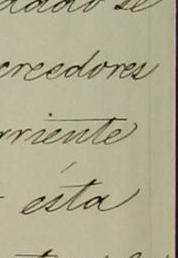 dado se
creedores
rriente
- esta